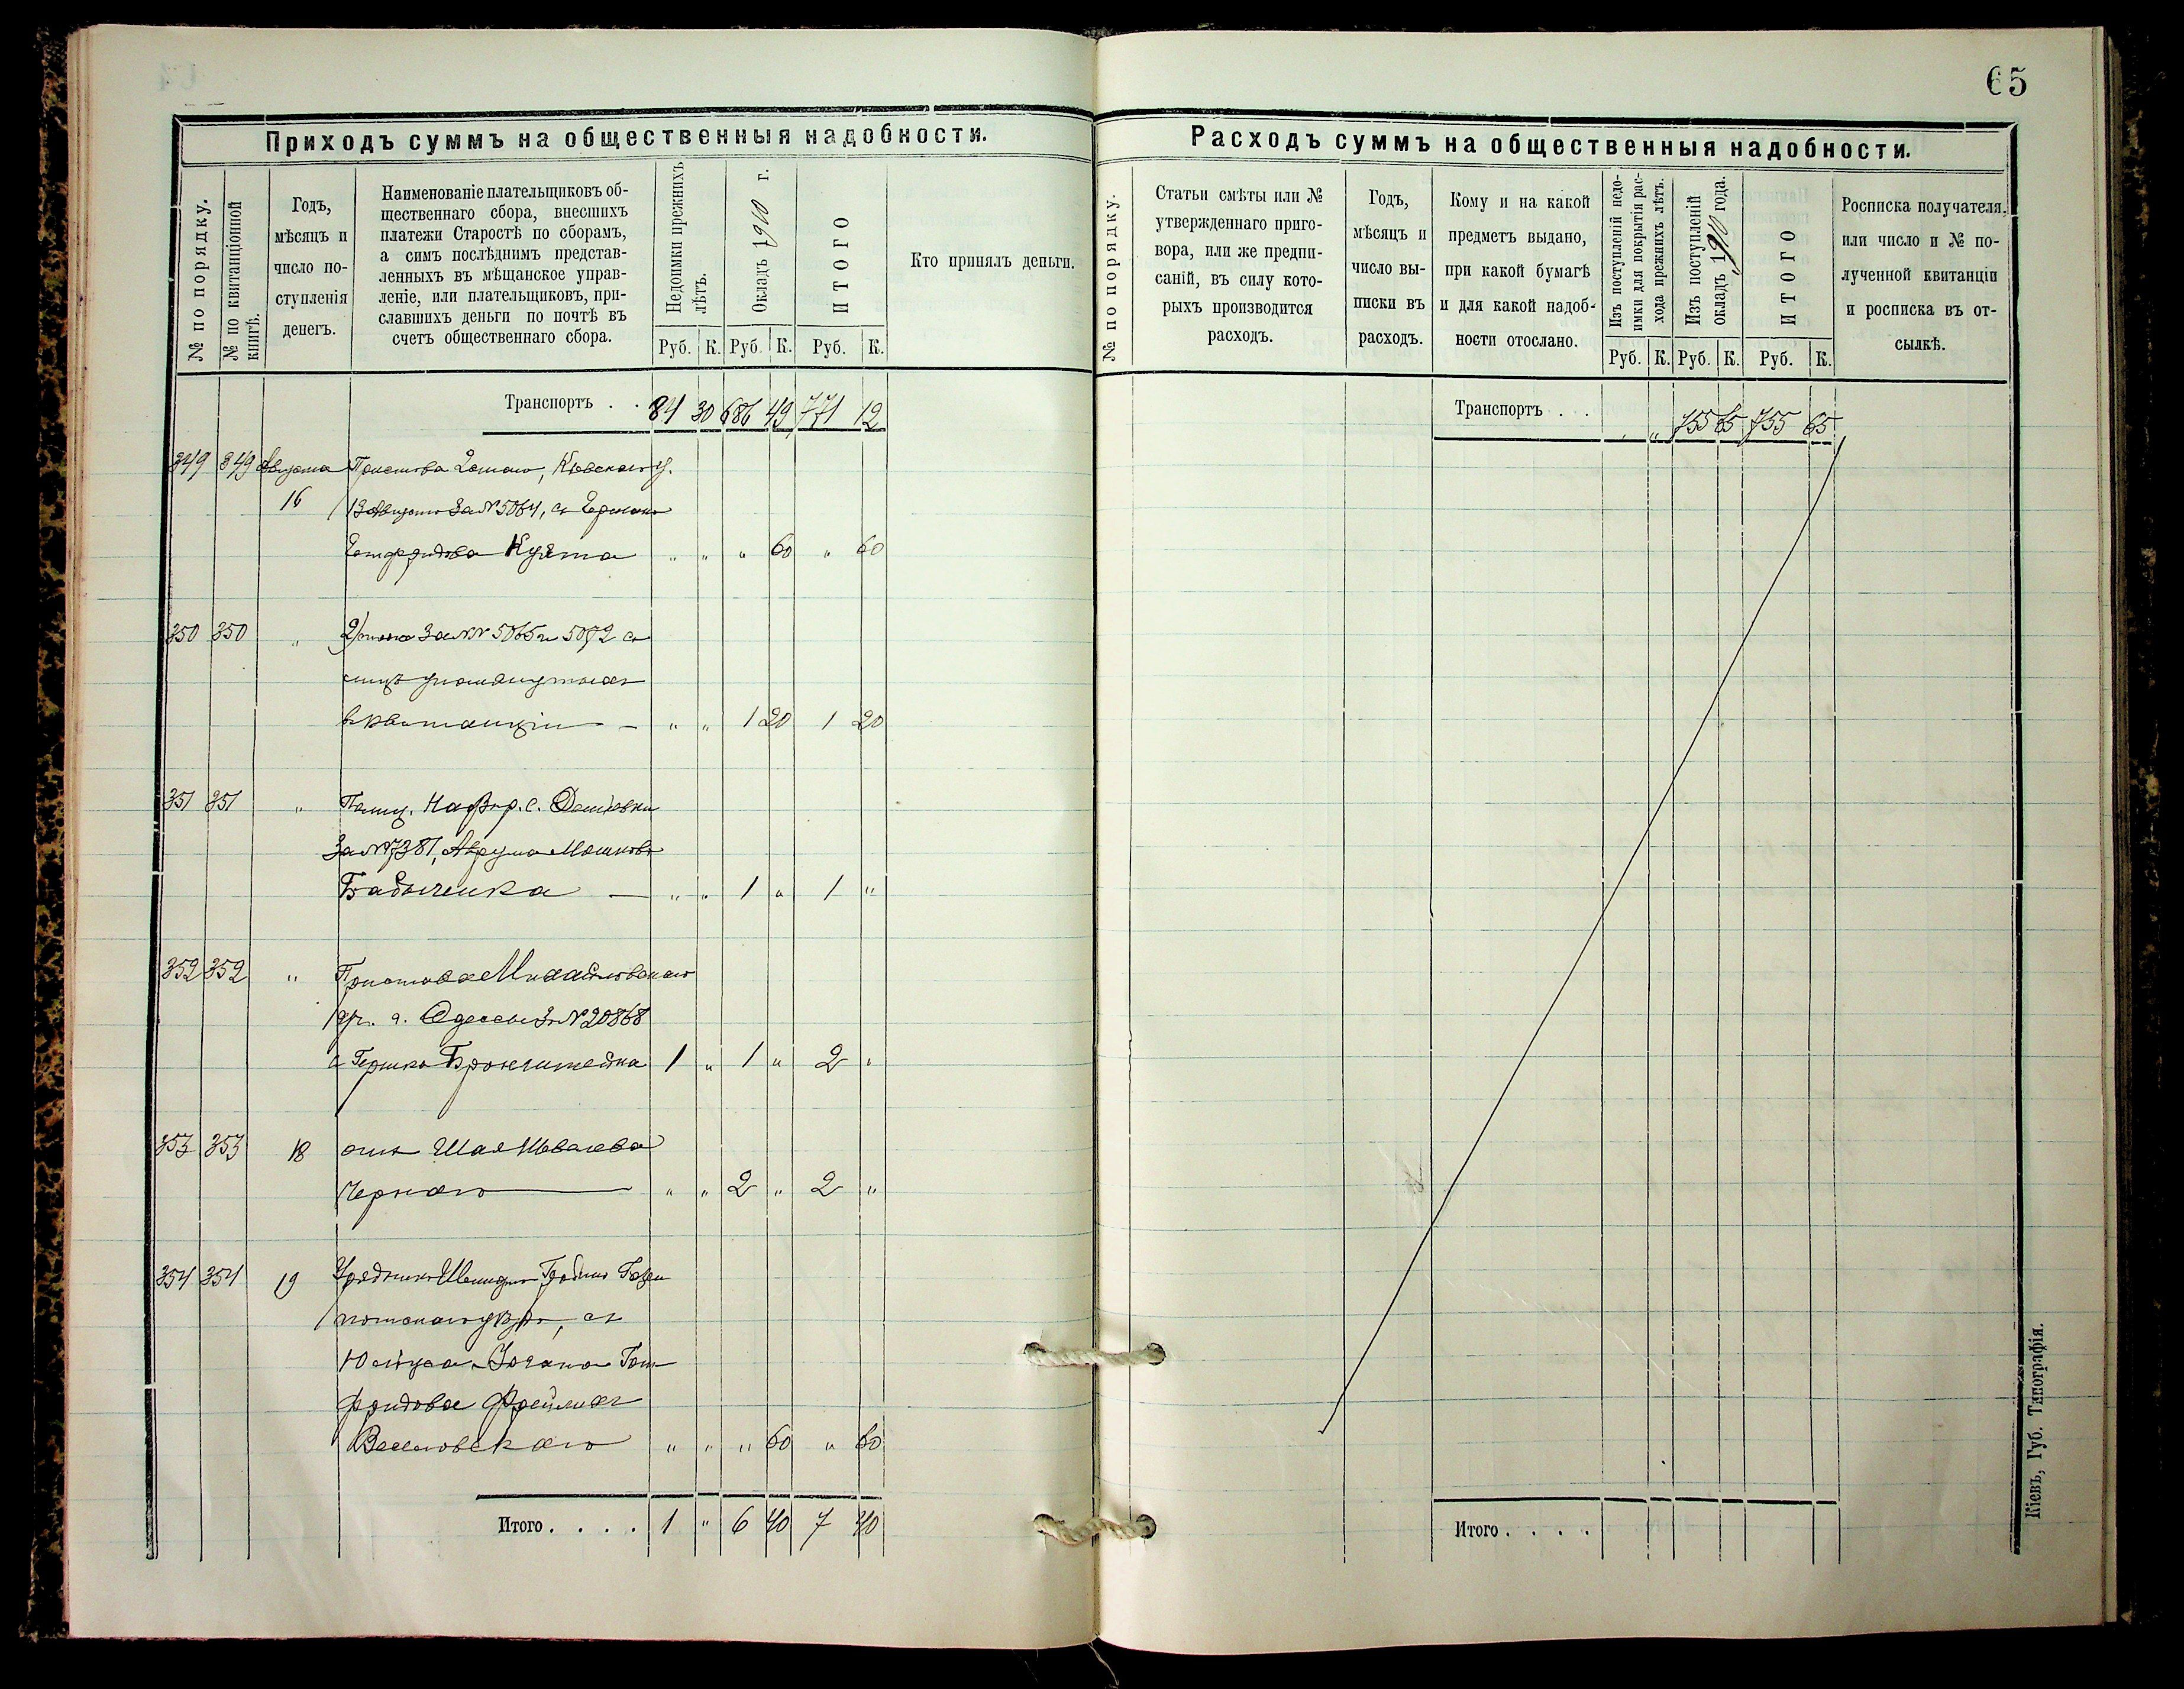 65
Приходъ суммъ на общественныя надобности.
№ по порядку.
№ по квитанціонной книгѣ.
Годъ,
мѣсяцъ и
число по-
ступленія
денегъ.
Наименованіе плательщиковъ об-
щественнаго сбора, внесшихъ
платежи Старостѣ по сборамъ,
а симъ послѣднимъ представ-
ленныхъ въ мѣщанское управ-
леніе, или плательщиковъ, при-
славшихъ деньги по почтѣ въ
счетъ общественнаго сбора.
Недоимки прежнихъ
лѣтъ.
Окладъ 1910 г.
ИТОГО
Кто принялъ деньги.
Руб. К. Руб. К. Руб. К.
Транспортъ . . 84 30 686 49 771 12
349 349 Августа Пристава 2
16 13 Августа за № 5064, съ
" " " 60 " 60
350 350 " за №№ 5065 и 5072 съ
лицъ упомянутыхъ
въ квитанціи — " " 1 20 1 20
351 351 "
За № 7381, Аврума Мошкова
" " 1 " 1 "
352 352 " Пристава Михайловскаго
уч. г. Одессы за № 20868
съ Гершка Бронштейна 1 " 1 " 2 "
353 353 18 отъ Шая
Чернаго " " 2 " 2 "
354 354 19 Урядника
съ
Фридова
" " " 60 " 60
Итого . . . . 1 " 6 40 7 40
Расходъ суммъ на общественныя надобности.
№ по порядку.
Статьи смѣты или №
утвержденнаго приго-
вора, или же предпи-
саній, въ силу кото-
рыхъ производится
расходъ.
Годъ,
мѣсяцъ и
число вы-
писки въ
расходъ.
Кому и на какой
предметъ выдано,
при какой бумагѣ
и для какой надоб-
ности отослано.
Изъ поступленій недо-
имки для покрытія рас-
хода прежнихъ лѣтъ.
Изъ поступленій
окладъ 1910 года.
ИТОГО
Росписка получателя,
или число и № по-
лученной квитанціи
и росписка въ от-
сылкѣ.
Руб. К. Руб. К. Руб. К.
Транспортъ . . " " 755 65 755 65
Итого . . . .
Кіевъ, Губ. Типографія.